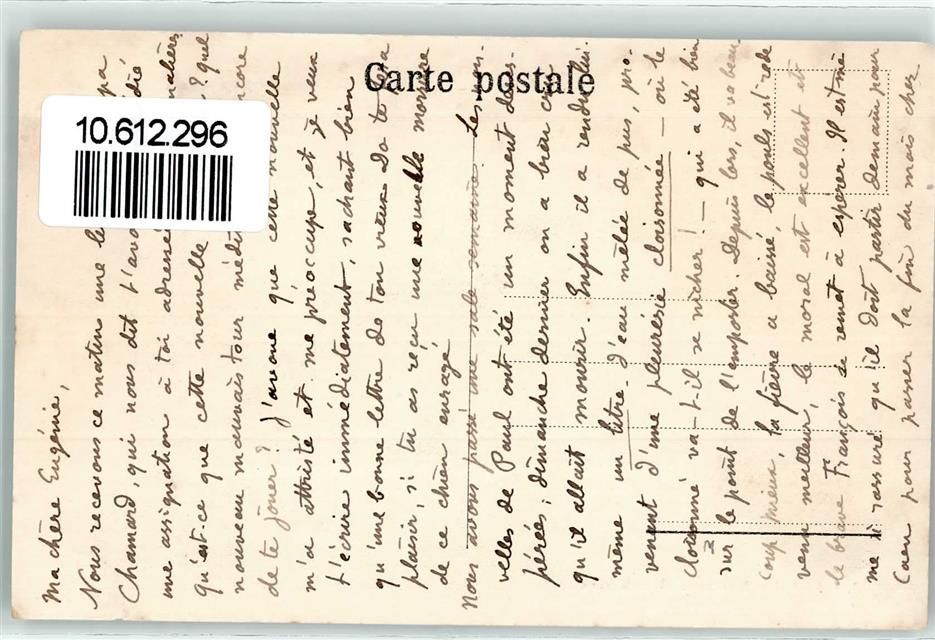 Carte postale
10.612.296
Ma chère Eugénie,
Nous recevons ce matin une le pa
Chamard, qui nous dit t'avo dié
une assignation à toi adressé nahères
qu'est-ce que cette nouvelle ? quel
nouveau mauvais tour médit encore
de te jouer ? J'avoue que cette nouvelle
m'a attristé et me préoccupe, et je veux
t'écrire immédiatement, sachant bien
qu'une bonne lettre de ton vieux Do te fera
plaisir, si tu as reçu une nouvelle morsure
de ce chien enragé.
Nous avons passé une sale semaine. Les nou-
velles de Paul ont été un moment déses-
pérées ; dimanche dernier on a bien cru
qu'il allait mourir. Enfin il a rendu lui-
même un litre d'eau mêlée de pus, pro-
venant d'une pleurésie cloisonnée - où le
cloisonné va-t-il se nicher ! - qui a été bien
sur le point de l'emporter. Depuis lors, il va beau-
coup mieux, la fièvre a baissé, le pouls est rede
venu meilleur, le moral est excellent et
le brave François se remet à espérer. Il est mê
me si rassuré qu'il doit partir demain pour
Caen pour passer la fin du mois chez